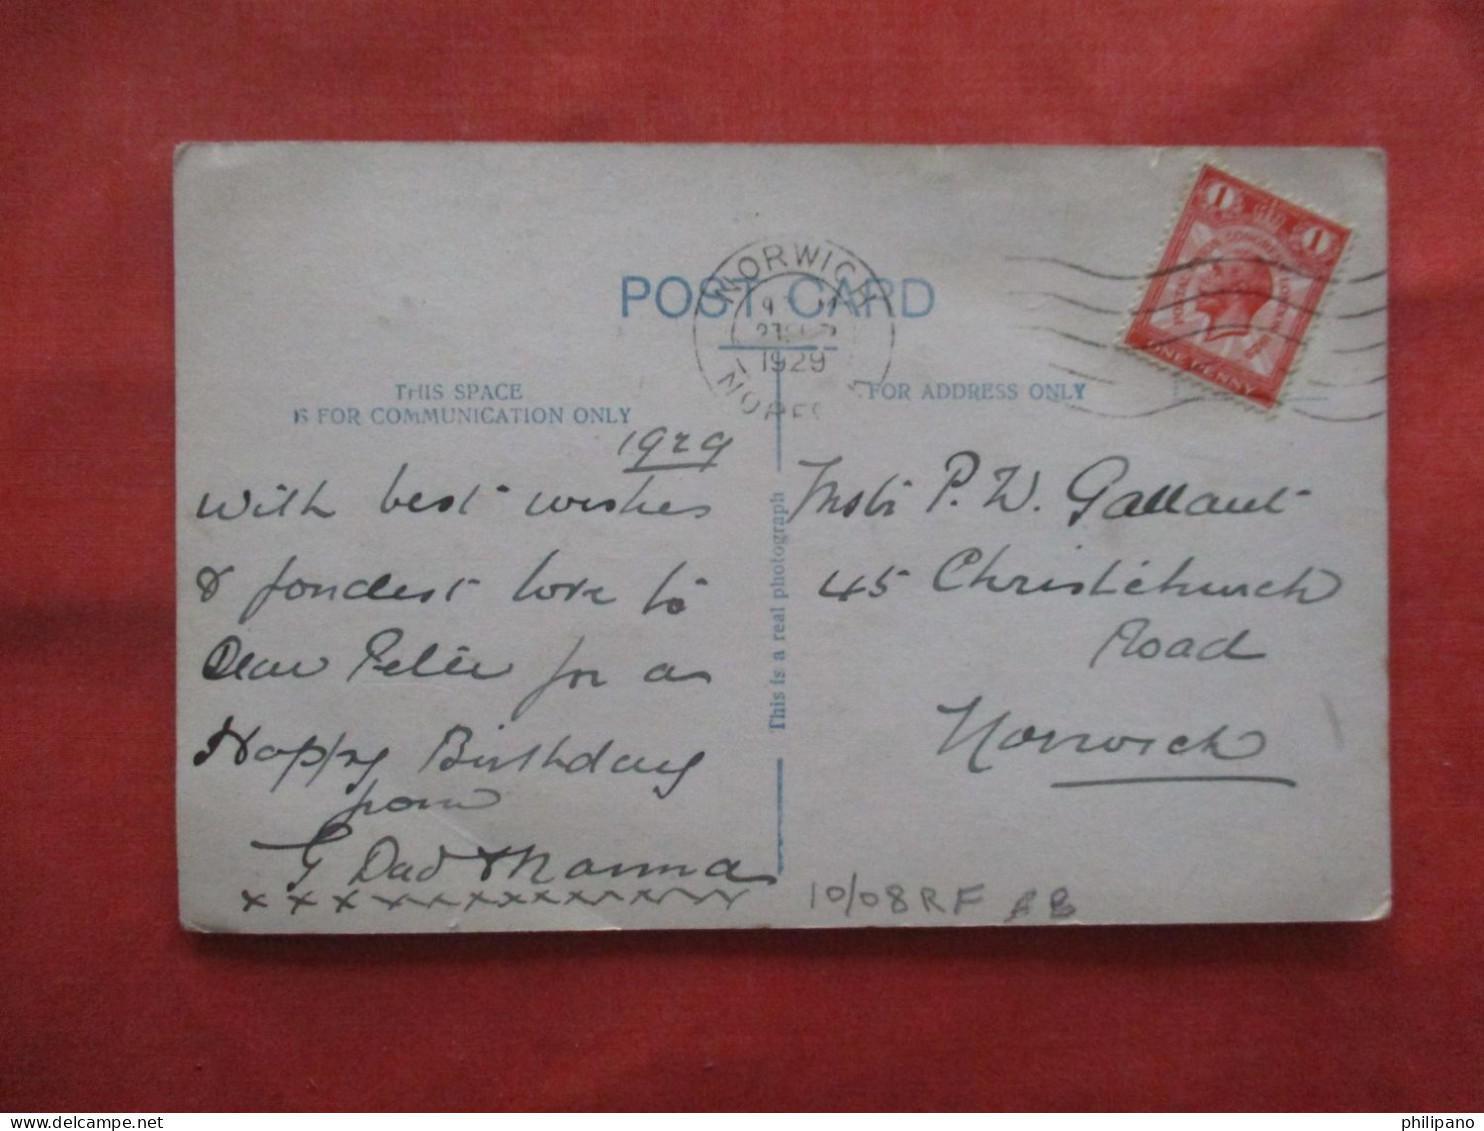 POST CARD
NORWICH
1929
THIS SPACE
IS FOR COMMUNICATION ONLY
FOR ADDRESS ONLY
1 1
ONE PENNY
This is a real photograph
1929
With best wishes
& fondest love to
Dear Peter for a
Happy Birthday
from
G Dad & Nanna
x x x x x x x x x x x x
Mstr P. W. Gallant
45 Christchurch
Road
Norwich
10/08RF AB
philipano